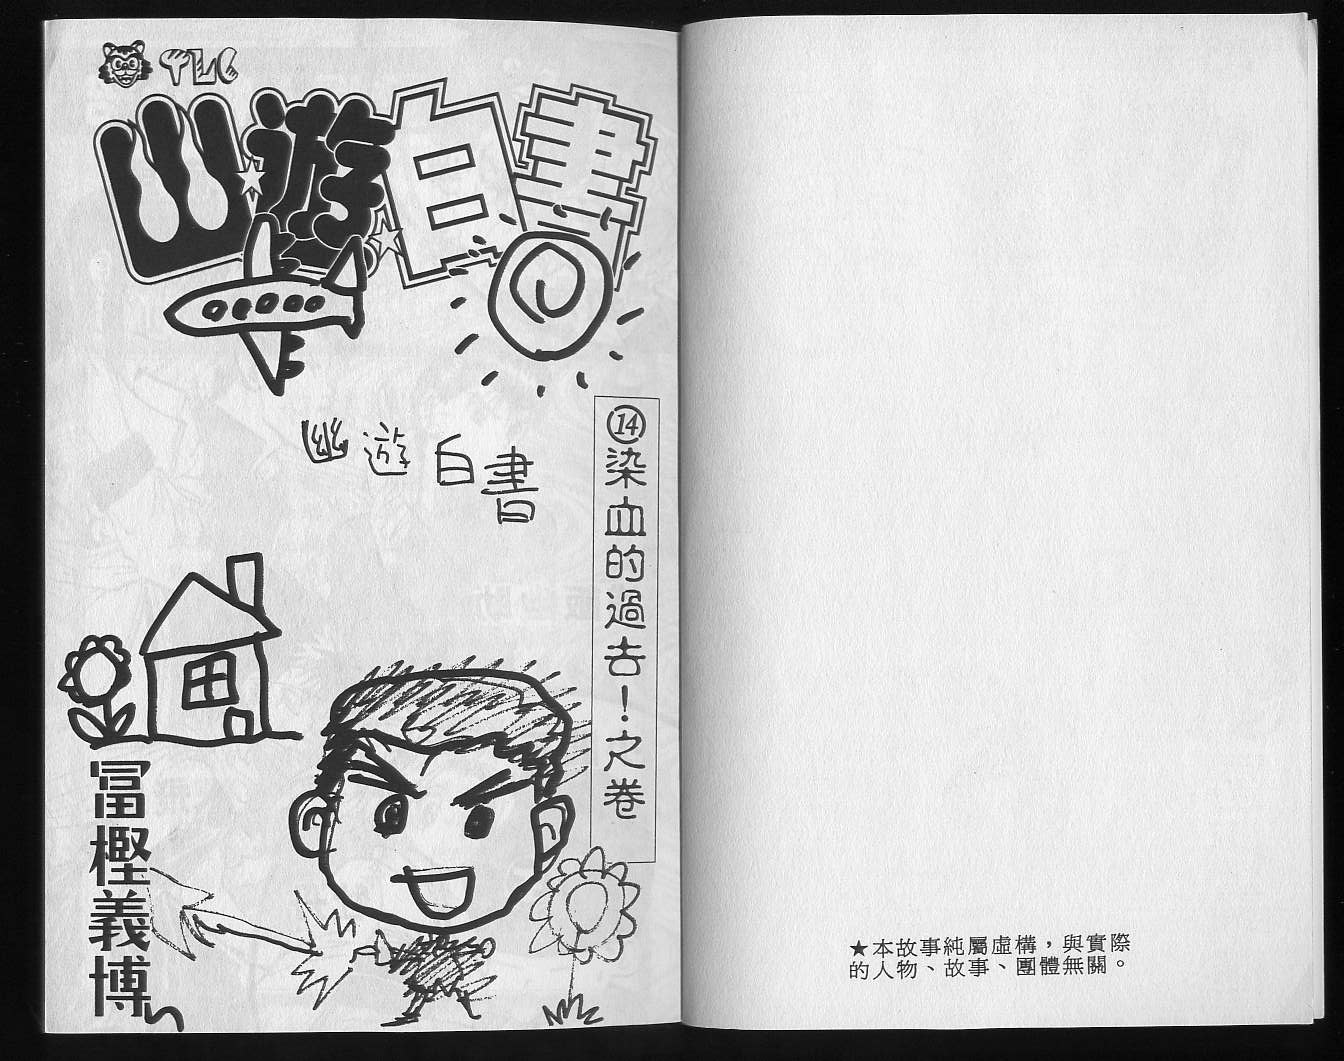 TLC
幽遊白書
幽遊白書
⑭染血的過去!之卷
冨樫義博
★本故事純屬虛構，與實際
的人物、故事、團體無關。